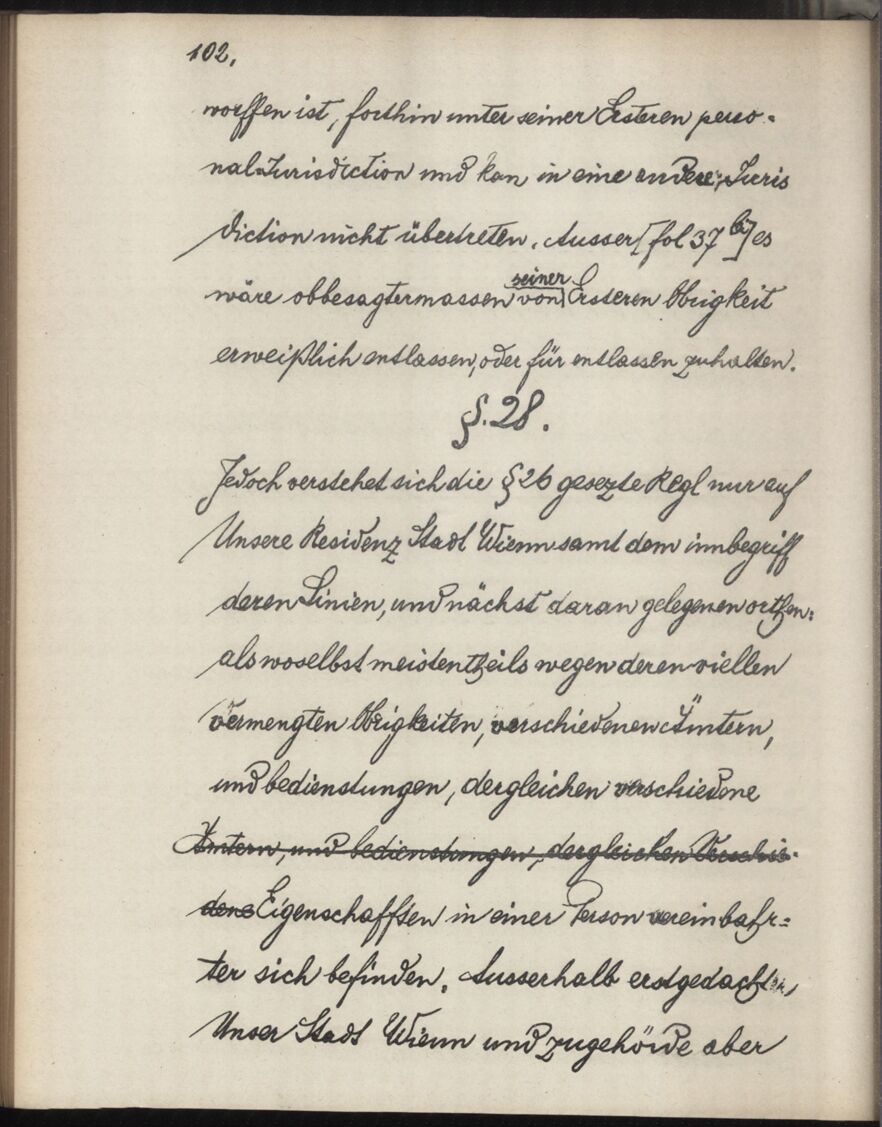 102.
worffen ist, forthin unter seiner Ersteren perso-
nal Jurisdiction und kan in eine andere Juris
diction nicht übertreten. Ausser [fol 37 b] es
wäre obbesagtermassen von seiner Ersteren Obrigkeit
erweißlich entlassen, oder für entlassen zuhalten.
§. 28.
Jedoch verstehet sich die § 26 gesezte Regl nur auf
Unsere Residenz Stadt Wienn samt dem innbegriff
deren Linien, und nächst daran gelegenen orthen:
als woselbst meistentheils wegen deren viellen
vermengten Obrigkeiten, verschiedenen Ämtern,
und bedienstungen, dergleichen verschiedene
Ämtern, und bedienstungen, dergleichen Verschie-
dene Eigenschafften in einer Person vereinbahr=
ter sich befinden. Ausserhalb erstgedachter,
Unser Stadt Wienn und zugehörde aber